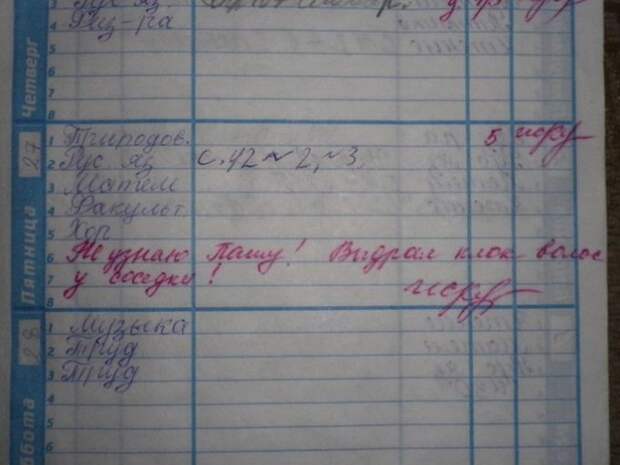 3 Рус. яз.
4 Физ-ра
5
6
7
8
Четверг
27
Пятница
1 Природов. 5
2 Рус. яз. с. 42 №2, №3.
3 Матем
4 Факульт.
5 Хор
6 Не узнаю Пашу! Выдрал клок волос
7 у соседки!
8
28
ббота
1 Музыка
2 Труд
3 Труд
4
5
6